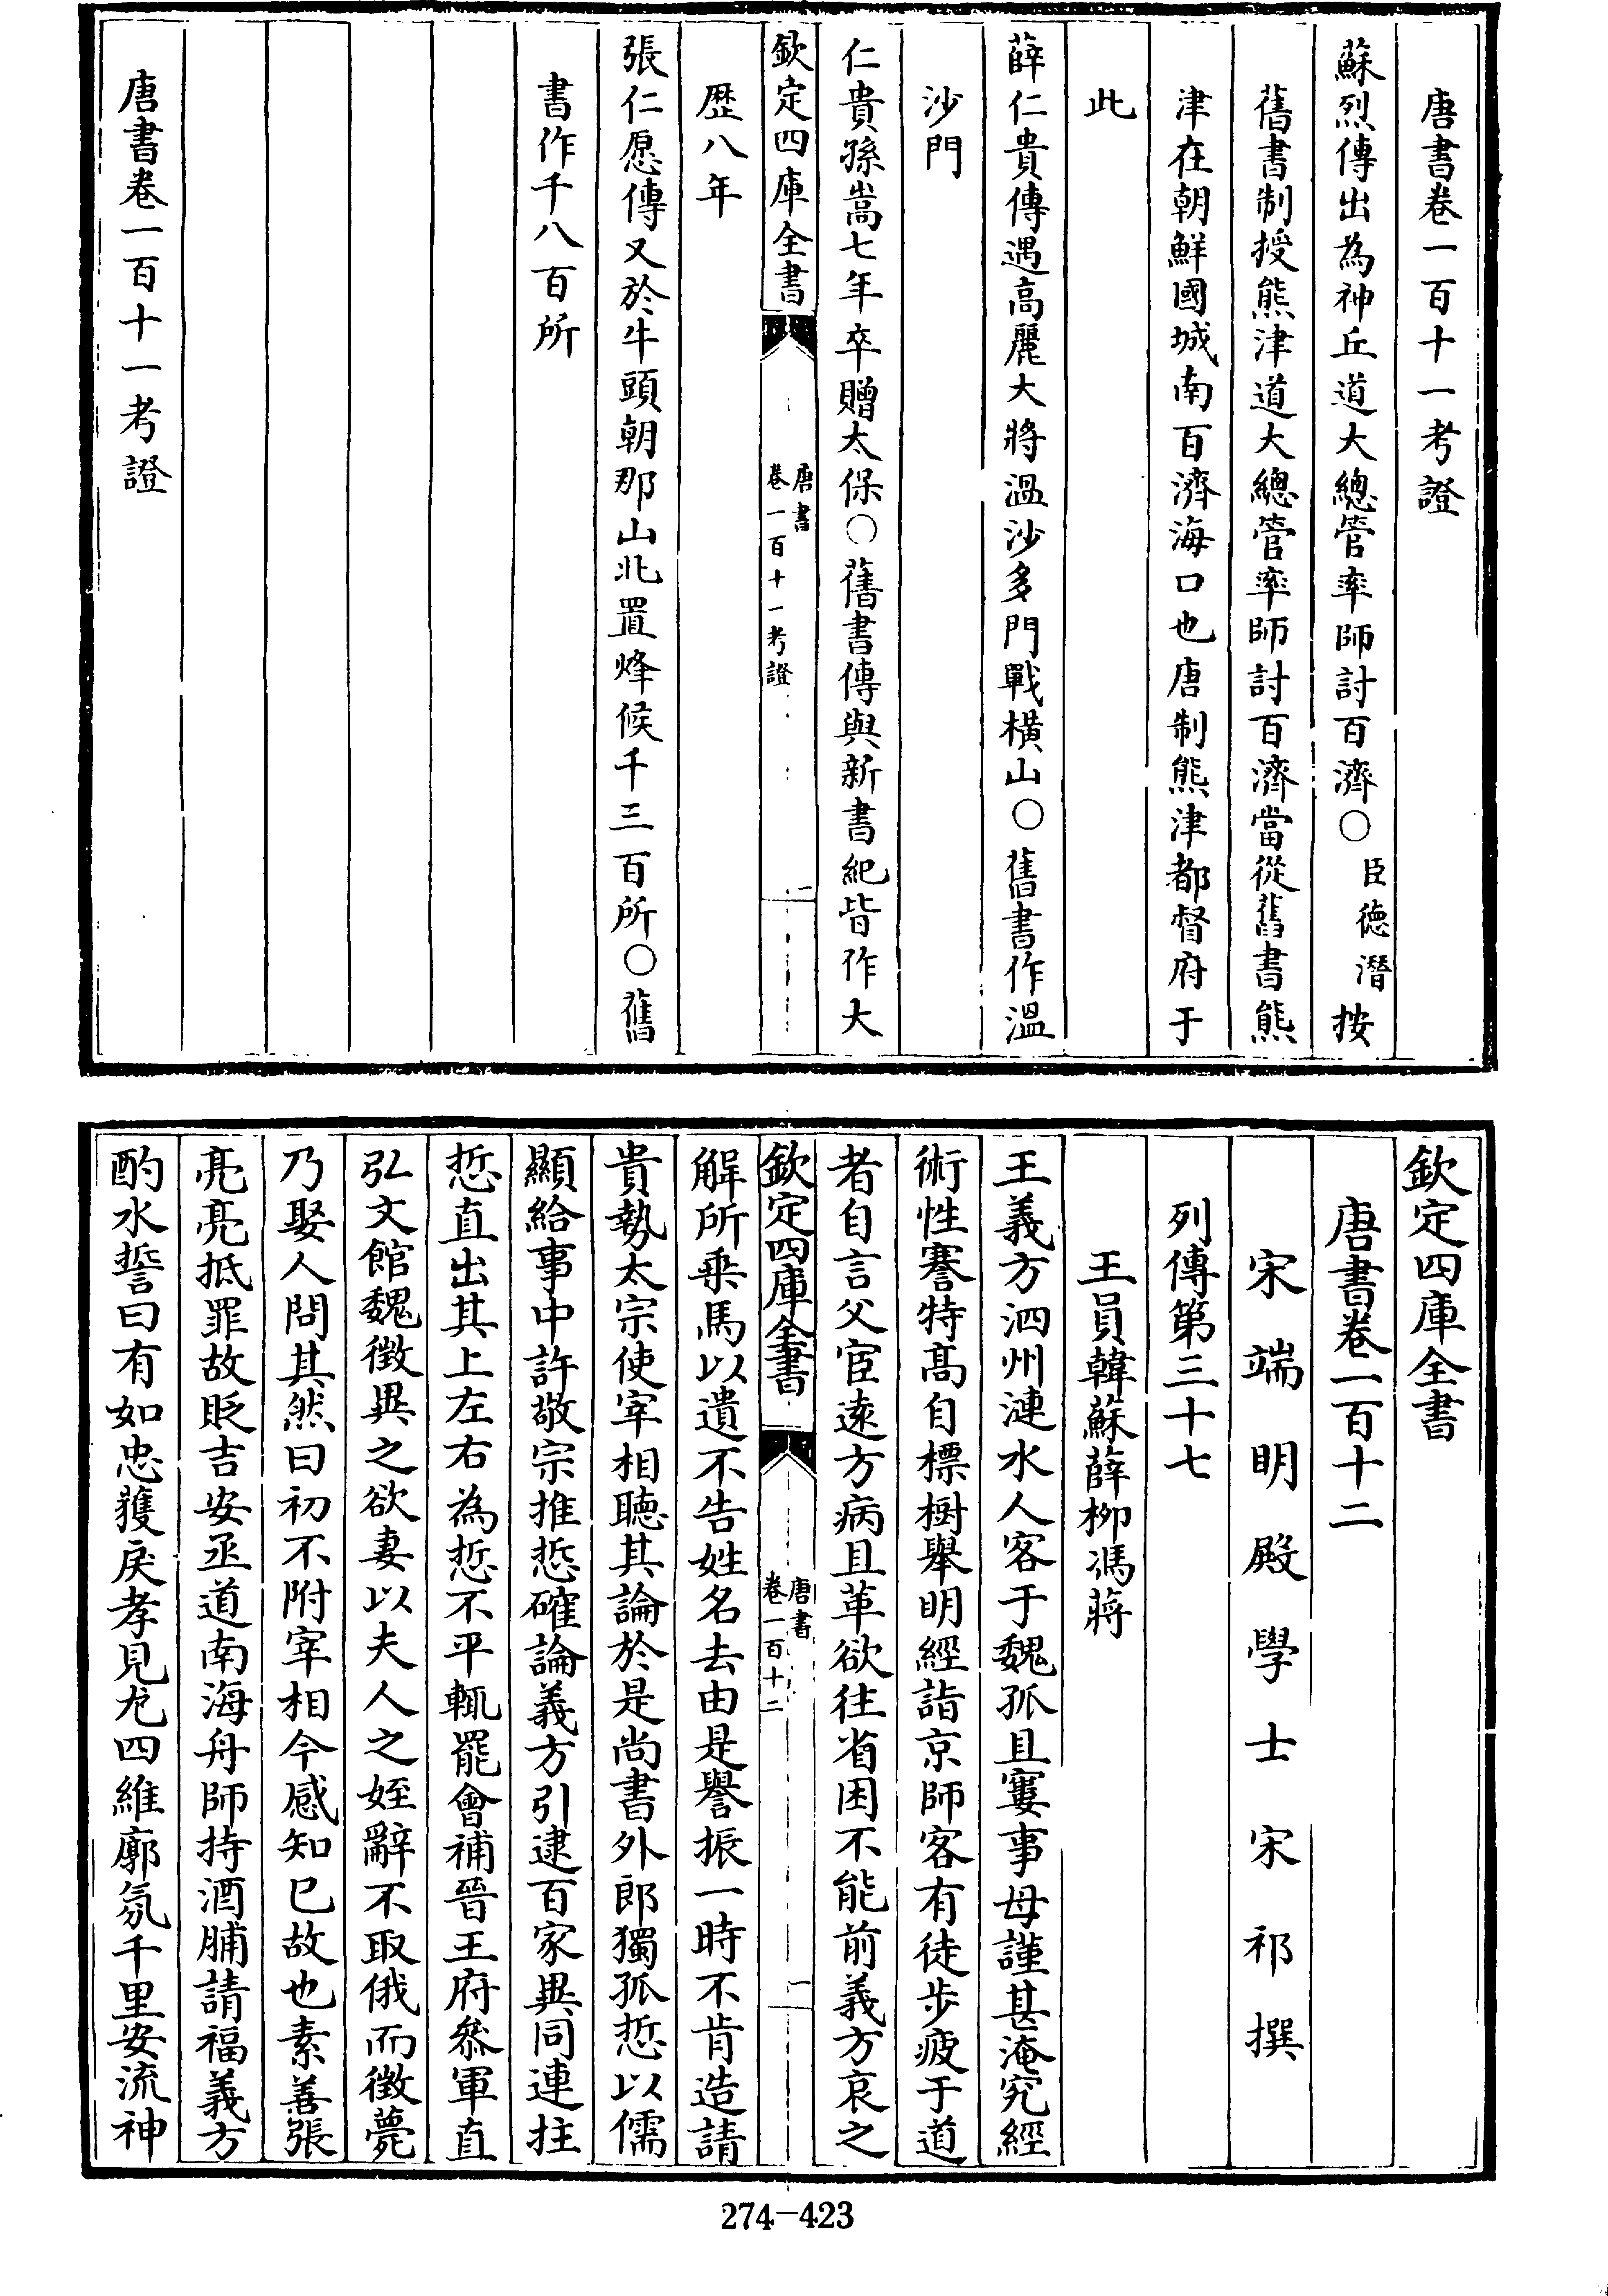 唐書卷一百十一考證
蘇烈傳出為神丘道大總管率師討百濟○臣德潛按
舊書制授熊津道大總管率師討百濟當從舊書熊
津在朝鮮國城南百濟海口也唐制熊津都督府于
此
薛仁貴傳遇高麗大將溫沙多門戰橫山○舊書作溫
沙門
仁貴孫嵩七年卒贈太保○舊書傳與新書紀皆作大
欽定四庫全書
唐書
卷一百十一考證
一
歴八年
張仁愿傳又於牛頭朝那山北置烽候千三百所○舊
書作千八百所
唐書卷一百十一考證
欽定四庫全書
唐書卷一百十二
宋端明殿學士宋祁撰
列傳第三十七
王員韓蘇薛栁馮蔣
王義方泗州漣水人客于魏孤且窶事母謹甚淹究經
術性謇特髙自標樹舉明經詣京師客有徒步疲于道
者自言父宦逺方病且革欲往省困不能前義方哀之
欽定四庫全書
唐書
卷一百十二
一
解所乘馬以遺不告姓名去由是譽振一時不肯造請
貴勢太宗使宰相聽其論於是尚書外郎獨孤悊以儒
顯給事中許敬宗推悊確論義方引逮百家異同連拄
悊直出其上左右為悊不平輒罷會補晉王府叅軍直
弘文館魏徵異之欲妻以夫人之姪辭不取俄而徵薨
乃娶人問其然曰初不附宰相今感知已故也素善張
亮亮抵罪故貶吉安丞道南海舟師持酒脯請福義方
酌水誓曰有如忠獲戾孝見尤四維廓氛千里安流神
274-423